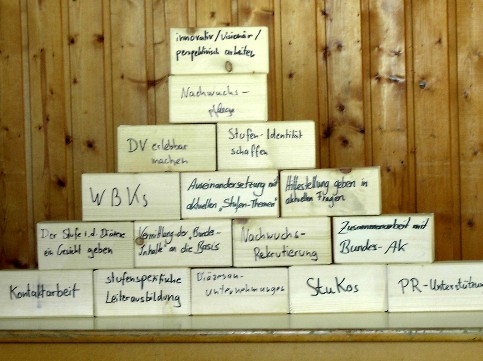 innovativ/visionär/
perspektivisch arbeiten
Nachwuchs-
pflege
DV erlebbar
machen
Stufen-Identität
schaffen
WBKs
Auseinandersetzung mit
aktuellen "Stufen-Themen"
Hilfestellung geben in
aktuellen Fragen
Der Stufe i.d. Diözese
ein Gesicht geben
Vermittlung der "Bundes-
Inhalte" an die Basis
Nachwuchs-
Rekrutierung
Zusammenarbeit mit
Bundes-Ak
Kontaktarbeit
stufenspezifische
Leiterausbildung
Diözesan-
unternehmungen
StuKos
PR-Unterstützun